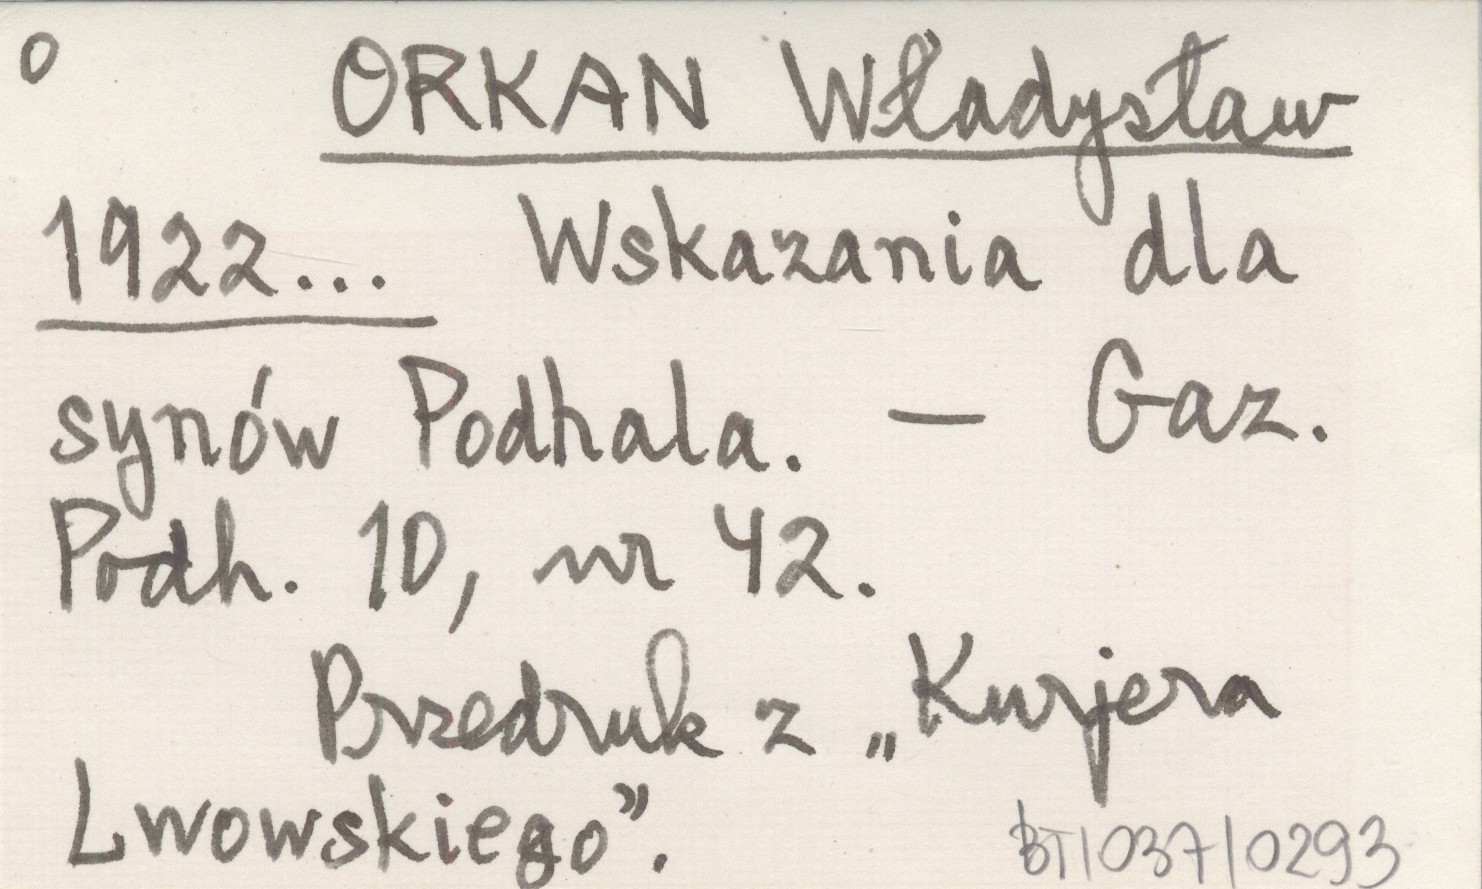 O ORKAN Władysław
1922... Wskazania dla
synów Podhala. — Gaz.
Podh. 10, nr 42.
Przedruk z „Kurjera
Lwowskiego”.
BT/037/0293